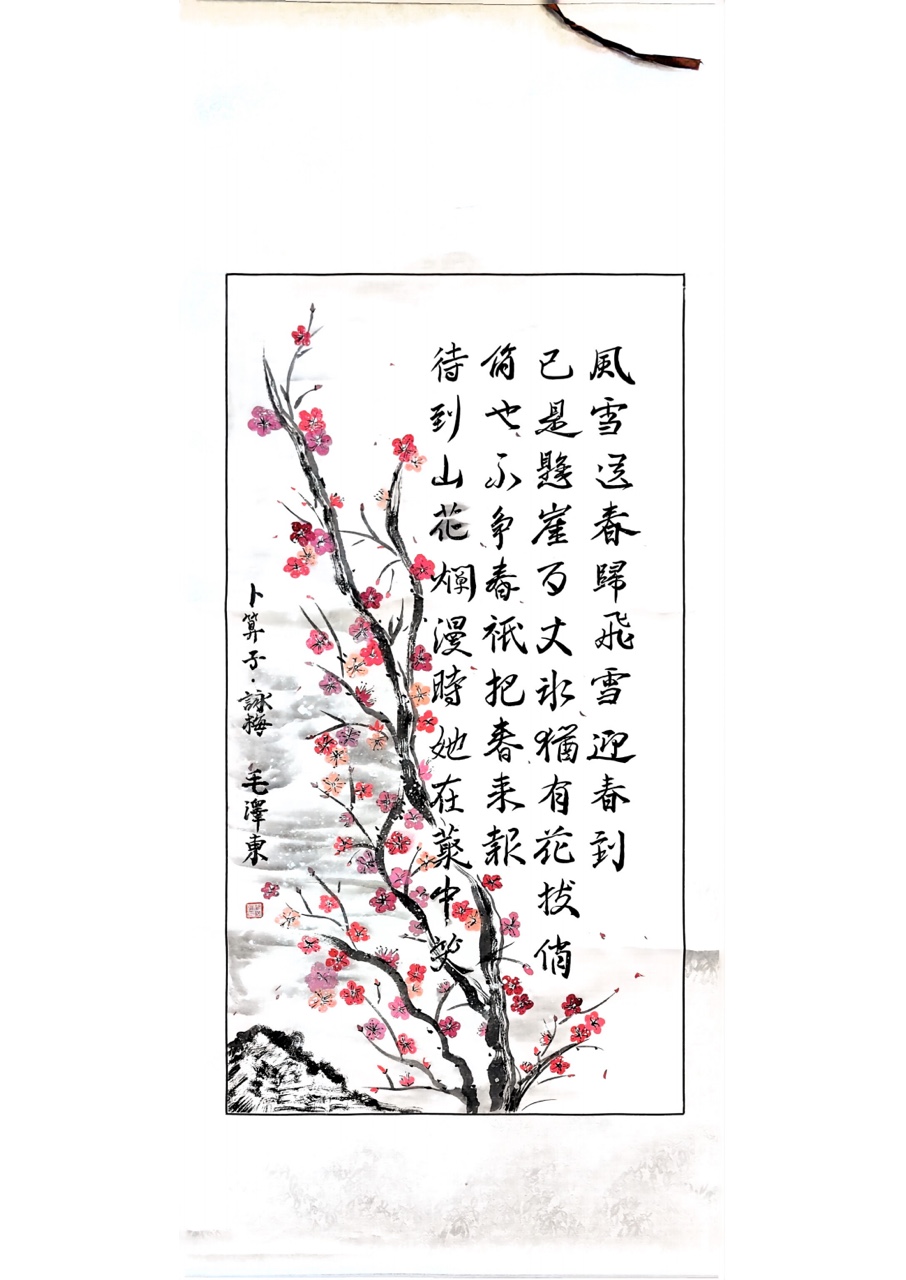 風雪送春歸飛雪迎春到
已是懸崖百丈氷猶有花枝俏
俏也不争春衹把春来報
待到山花爛漫時她在藂中笑
卜算子·詠梅 毛澤東